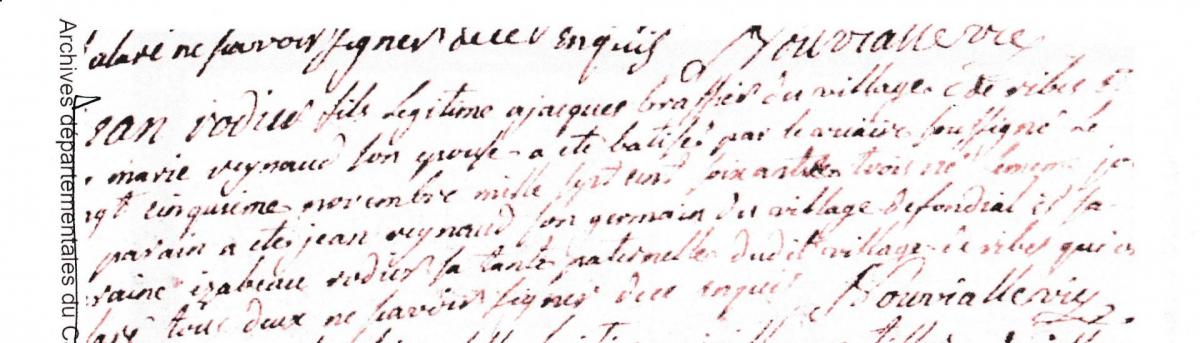 Archives départementales du C
claré ne savoir signer de ce enquis Rouviallevie
jean rodier fils legitime a jacques brassier du village de ribes et
marie reynaud son epouse a ete batisé par le vicaire soussigné le
ngt cinquieme novembre mille sept cent soixante trois né le meme jo
parain a ete jean reynaud son germain du village de fondial et sa
raine izabeau rodier sa tante paternelle dudit village de ribes qui o
claré tous deux ne savoir signer de ce enquis Rouviallevie